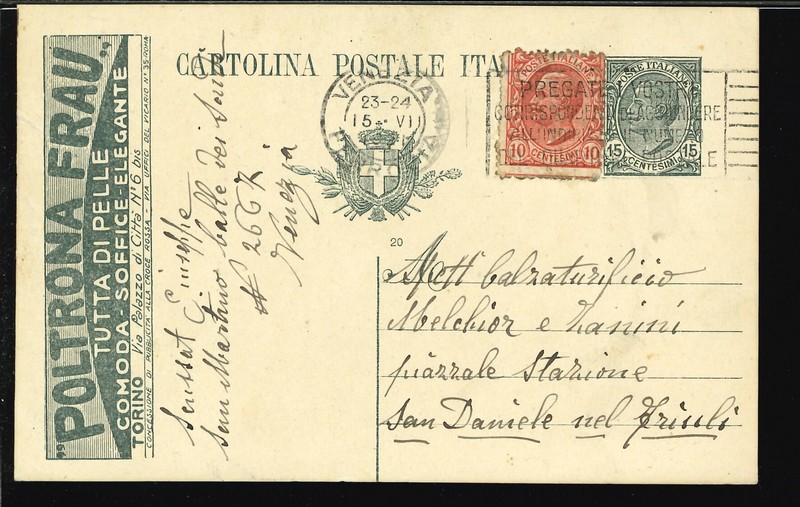 "POLTRONA FRAU"
TUTTA DI PELLE
COMODA - SOFFICE - ELEGANTE
TORINO Via Palazzo di Città N° 6 bis
CONCESSIONE DI PUBBLICITÀ ALLA CROCE ROSSA - VIA UFFICI DEL VICARIO N° 35 ROMA
CARTOLINA POSTALE ITA
VENEZIA
23-24
15 VI
POSTE ITALIANE
10 CENTESIMI 10
POSTE ITALIANE
15 CENTESIMI 15
PREGATE I VOSTRI
CORRISPONDENTI
Giuseppe
San Martino Calle dei
N 2667
Venezia
20
Calzaturificio
Melchior e Zanini
piazzale Stazione
San Daniele nel Friuli